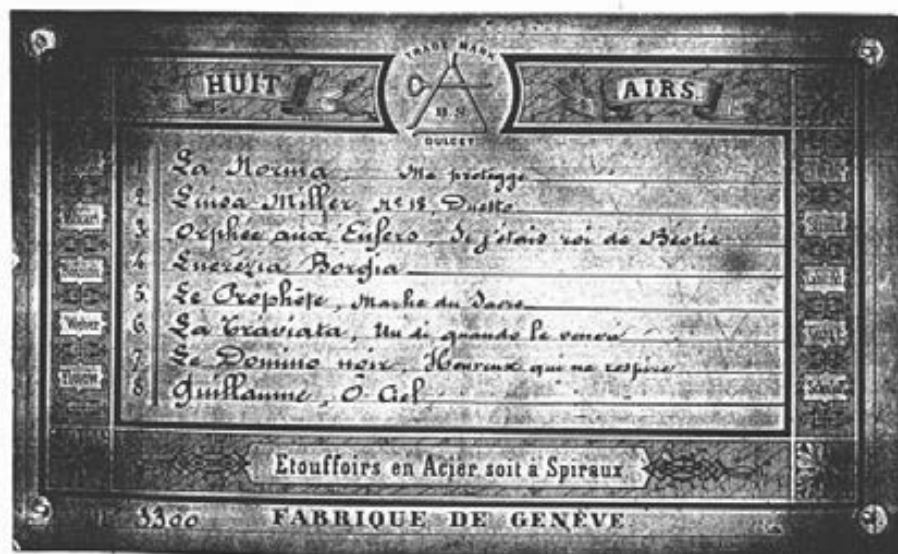 TRADE MARK
HUIT
AIRS.
B. S
DULCET
1. La Norma, Ma protegge
2. Luisa Miller, No 18, Duetto
3. Orphée aux Enfers, Si j'étais roi de Béotie
4. Lucrézia Borgia
5. Le Prophète, Marche du Sacre
6. La Traviata, Un di quando le veneri
7. Le Domino noir, Heureux qui ne respire
8. Guillaume, O Ciel
Mozart
Weber
Etouffoirs en Acier soit à Spiraux.
3300
FABRIQUE DE GENÈVE